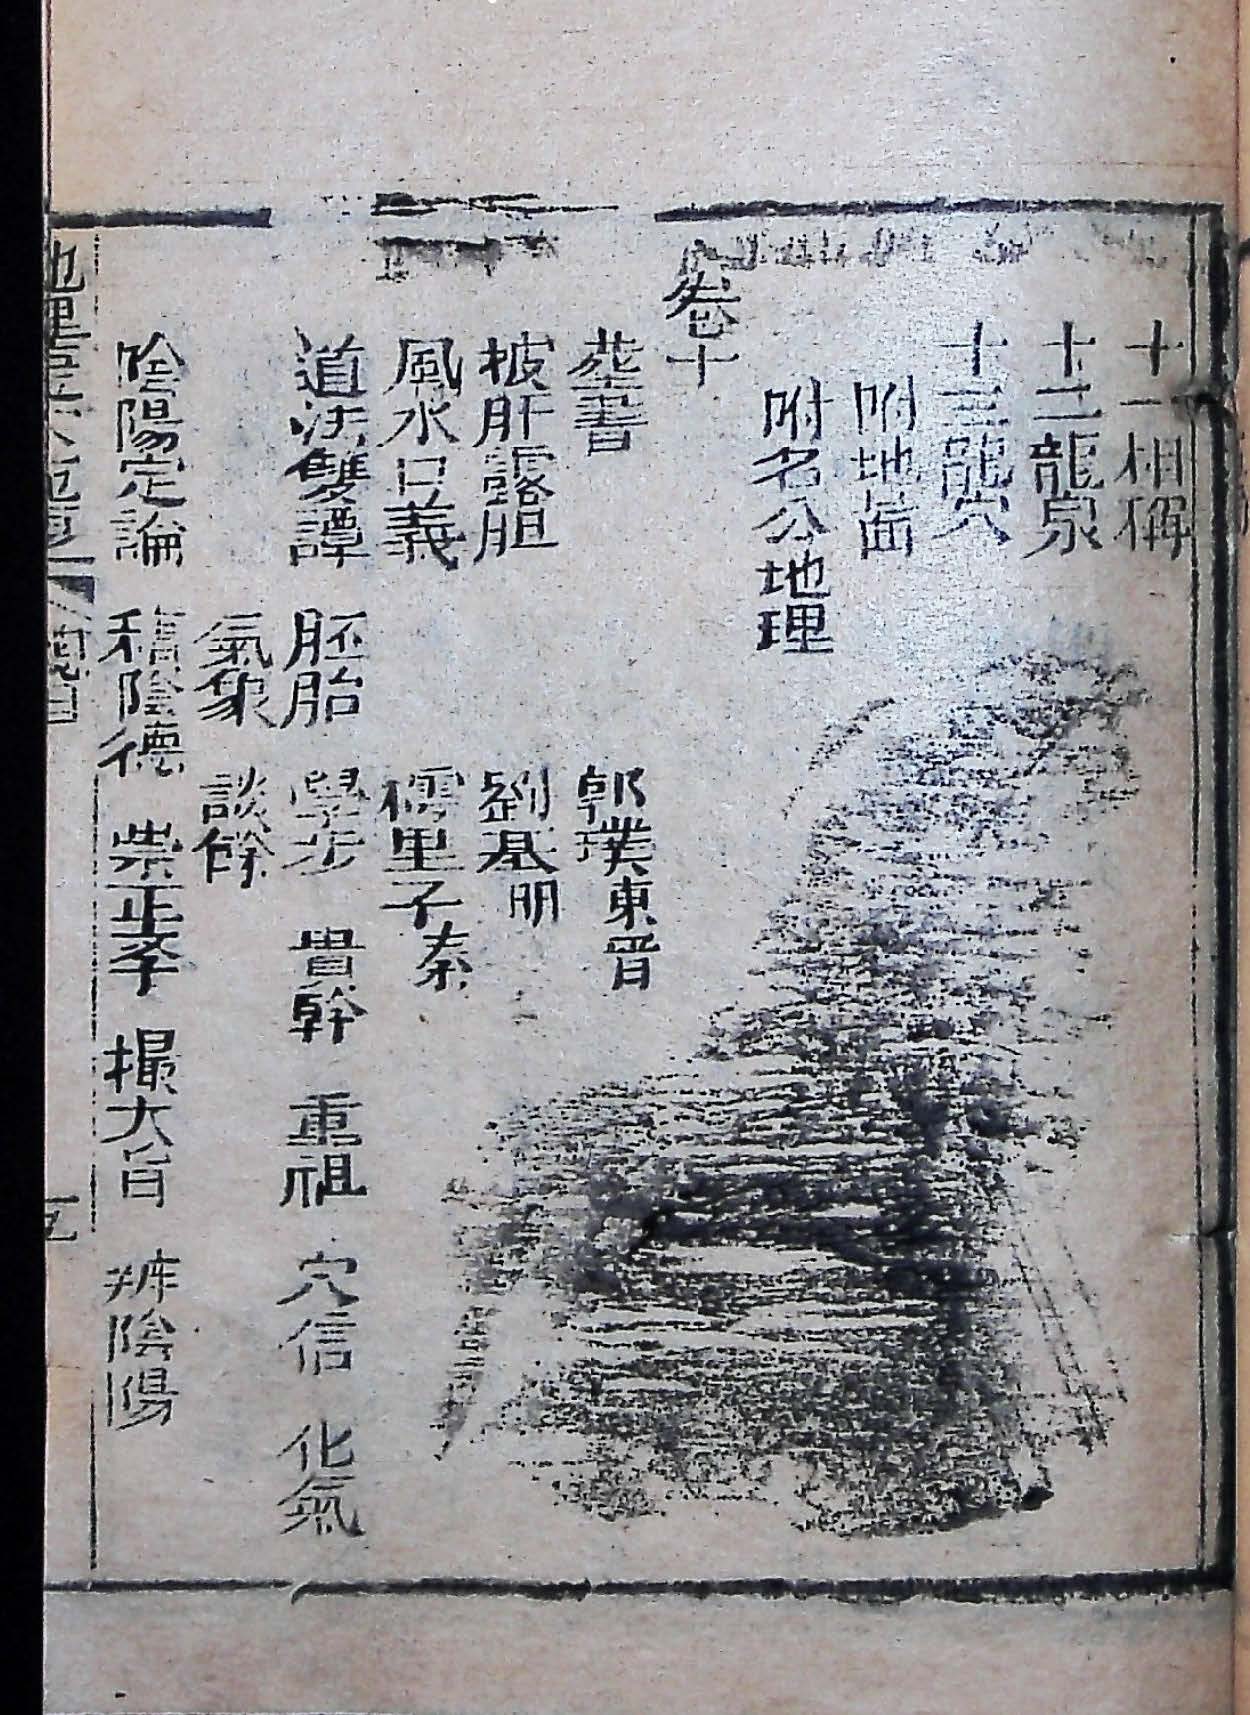 十一相稱
十二龍泉
十三龍穴
附地畄
附名公地理
卷十
塟書 郭璞東晋
披肝露胆 劉基明
風水口義 樗里子秦
道法雙譚 胚胎 學步 貴幹 重祖 穴信 化氣
氣象 談餘
陰陽定論 積陰德 崇正孝 撮大旨 辨陰陽
總目